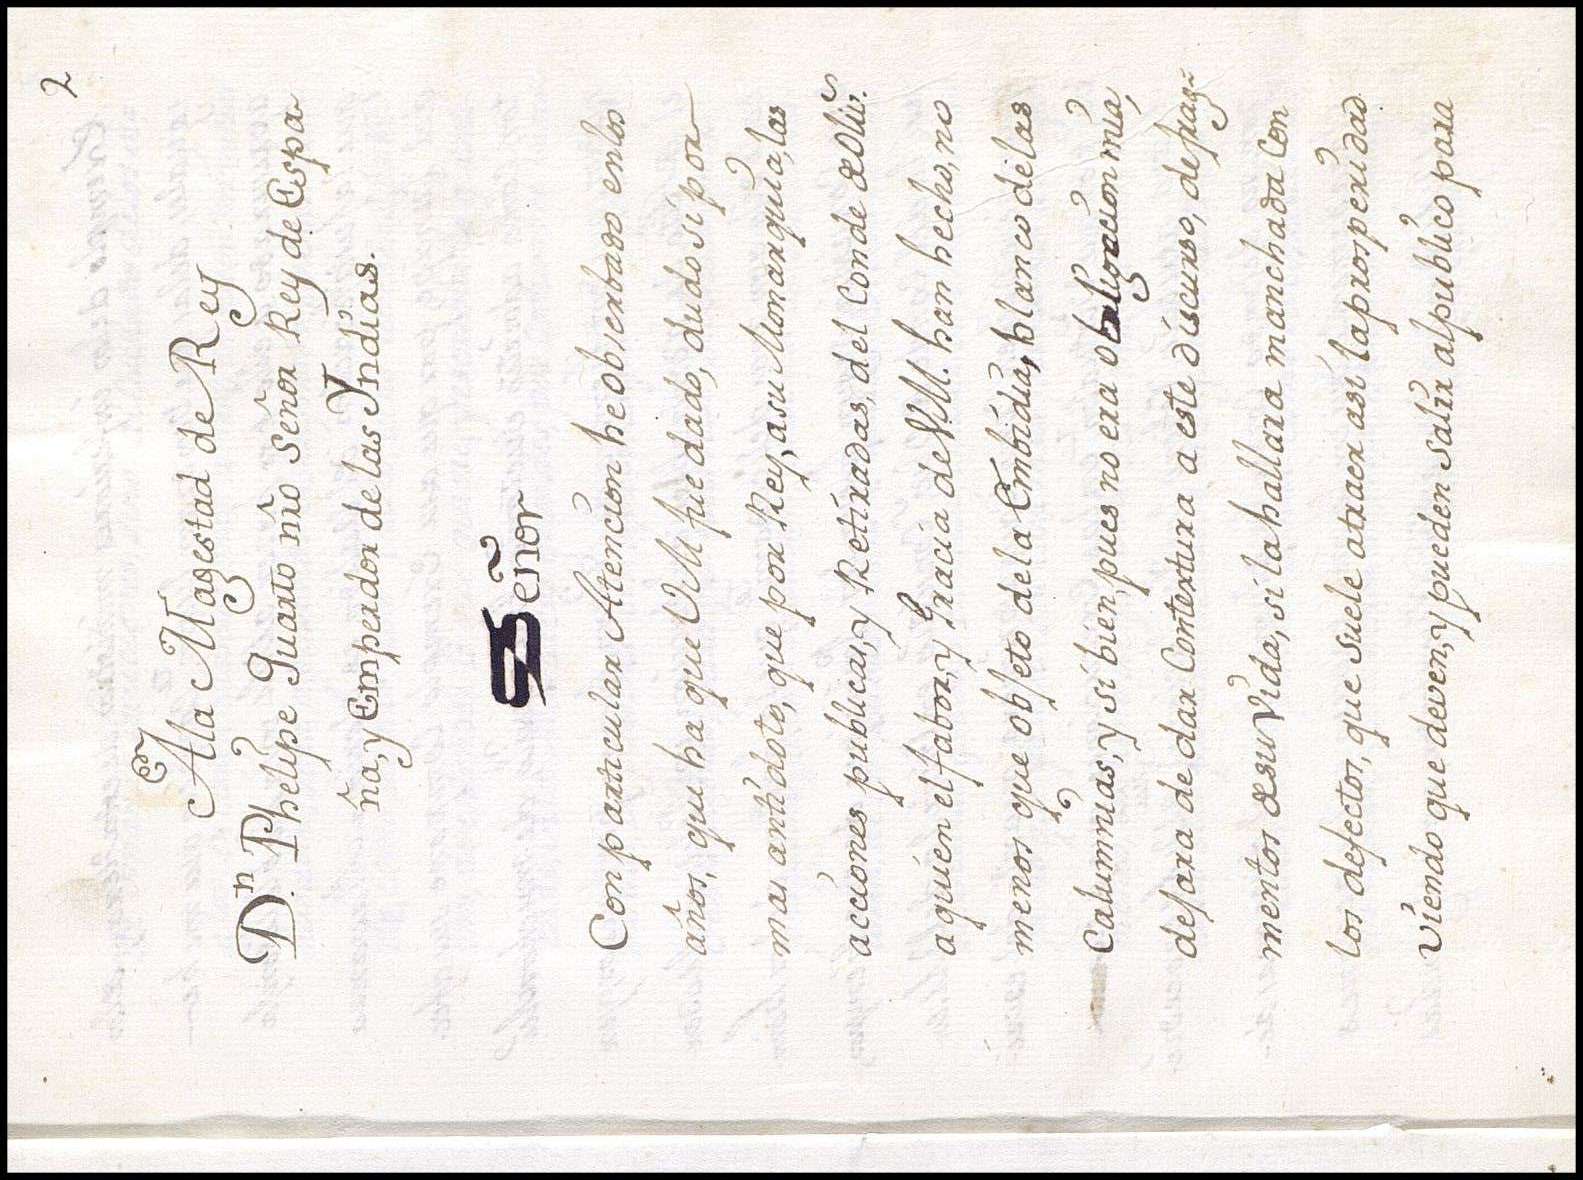 2
A la Magestad de Rey
Dⁿ. Phelipe Quarto mío señor Rey de Espa
ña, y Emperador de las Yndias.
Señor
Con particular Atencion he obserbado en los
años, que ha que VM fue dado, dudo si por
mas antídoto, que por Rey, a su Monarquía, las
acciones publicas, y Retiradas, del Conde de Oliv.ˢ
a quien el fabor, y Gracia de V.M. han hecho, no
menos que objeto de la Embidia, blanco de las
Calumnias, y si bien, pues no era obligacion mia,
dejara de dar Contextura a este discurso, de
mentos de su Vida, si la hallara manchada Con
los defectos, que suele atraer asi la prosperidad
Viendo que deven, y pueden salir al publico para